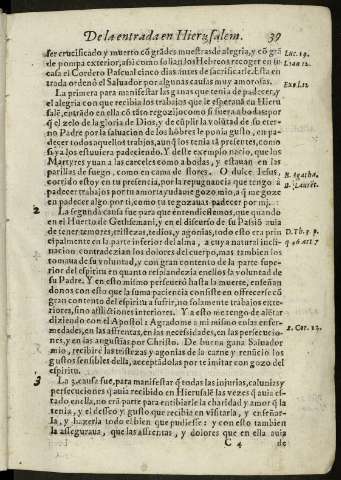 De la entrada en Hierusalem. 39
ser crucificado y muerto cō grādes muestras de alegria, y cō grā
de pompa exterior, assi como solian los Hebreos recoger en su
casa el Cordero Pascual cinco dias antes de sacrificarle. Esta en
trada ordenò el Saluador por algunas causas muy amorosas.
La primera para manifestar las ganas que tenia de padecer, y
el alegria con que recibia los trabajos que le esperauā en Hieru
salē, entrādo en ella cō tāto regozijo como si fuera a bodas: por
q̄ el zelo de la gloria de Dios, y de cūplir la volūtad de su eter-
no Padre por la saluacion de los hōbres le ponia gusto, en pa-
decer todos aquellos trabajos, aunq̄ los tenia tā presentes, como
si ya los estuuiera padeciendo. Y deste exemplo naciò, que los
Martyres yuan a las carceles como a bodas, y estauan en las
parrillas de fuego, como en cama de flores. O dulce Iesus,
corrido estoy en tu presencia, por la repugnancia que tengo à
padecer trabajos por tu amor, ayudame gozo mio, a q̄ me goze
en padecer algo por ti, como tu te gozauas padecer por mi.
2 La segunda causa fue para que entendiessemos, que quando
en el Huerto de Gethsemani, y en el discurso de su Passiō auia
de tener temores, tristezas, tedios, y agonias, todo esto era prin
cipalmente en la parte inferior del alma, a cuya natural incli-
nacion contradezian los dolores del cuerpo, mas tambien los
tomaua de su voluntad, y con gran contento de la parte supe-
rior del espiritu en quanto resplandezia en ellos la voluntad de
su Padre. Y en esto mismo perseuerò hasta la muerte, enseñan
donos con esto que la suma paciencia consiste en ofrecerse cō
gran contento del espiritu a sufrir, no solamente trabajos exte-
riores, sino aflicciones interiores. Y a esto me tengo de alētar
diziendo con el Apostol: Agradome a mi mismo en las enfer-
medades, en las afrentas, en las necessidades, en las persecucio-
nes, y en las angustias por Christo. De buena gana Saluador
mio, recibirè las tristezas y agonias de la carne y renuncio los
gustos sensibles della, aceptādolas por te imitar con gozo del
espiritu.
3 La 3. causa fue, para manifestar q̄ todas las injurias, calūnias y
persecuciones q̄ auia recebido en Hierusalē las vezes q̄ auia es-
tado en ella, no erā parte para entibiarle la charidad y amor q̄ la
tenia, y el desseo y gusto que recibia en visitarla, y enseñar-
la, y hazerla todo el bien que pudiesse: y con esto tambien
la asseguraua, que las afrentas, y dolores que en ella auia
C 4 de
Luc. 19.
Lioan 12.
Exod. 12
B. Agatha.
B. Lauret.
D. Th. 3. p.
q. 46. art. 7
2. Cor. 12.